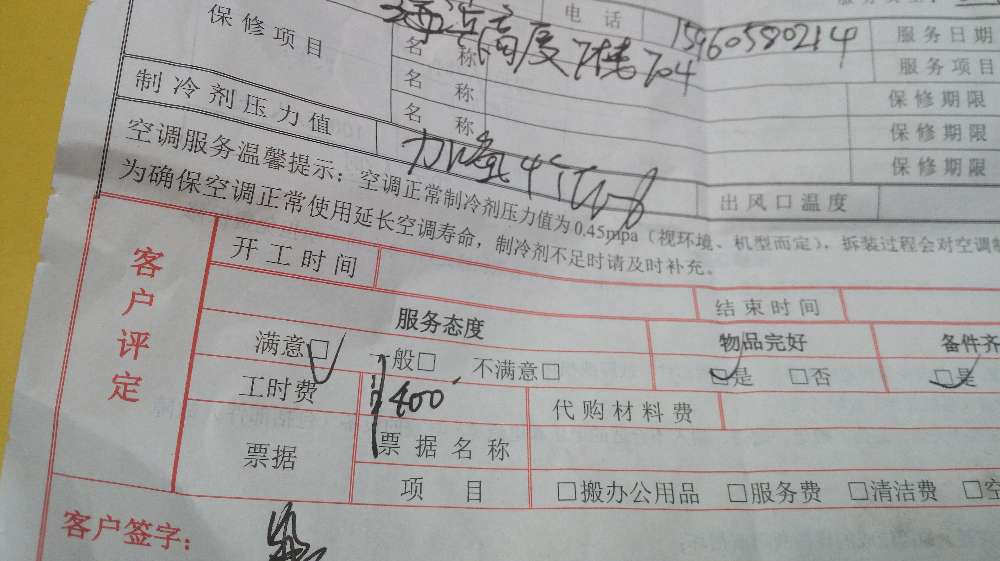 电话 15960580214 服务日期
保修项目 名称 高度7栋704 服务项目
名称 保修期限
名称 保修期限
制冷剂压力值 保修期限
出风口温度
空调服务温馨提示：空调正常制冷剂压力值为0.45mpa（视环境、机型而定），拆装过程会对空调
为确保空调正常使用延长空调寿命，制冷剂不足时请及时补充。
客户评定
开工时间 结束时间
服务态度 物品完好 备件齐
满意□ 一般□ 不满意□ □是 □否 □是
工时费 400 代购材料费
票据 票据名称
项目 □搬办公用品 □服务费 □清洁费 □空
客户签字：